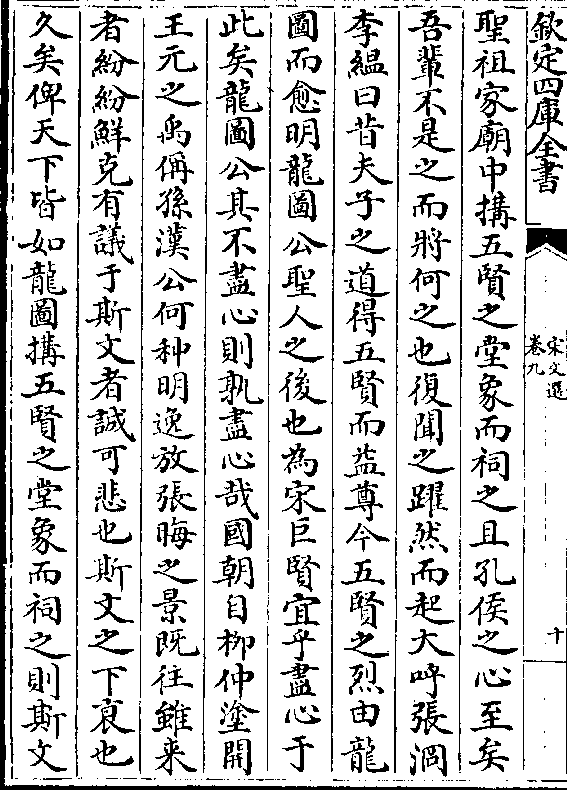 欽定四庫全書
宋文選
卷九
十
聖祖家廟中搆五賢之堂象而祠之且孔侯之心至矣
吾輩不是之而將何之也復聞之躍然而起大呼張洞
李緼曰昔夫子之道得五賢而益尊今五賢之烈由龍
圖而愈明龍圖公聖人之後也為宋巨賢宜乎盡心于
此矣龍圖公其不盡心則孰盡心哉國朝自柳仲塗開
王元之禹偁孫漢公何种明逸放張晦之景既往雖来
者紛紛鮮克有議于斯文者誠可悲也斯文之下衰也
久矣俾天下皆如龍圖搆五賢之堂象而祠之則斯文